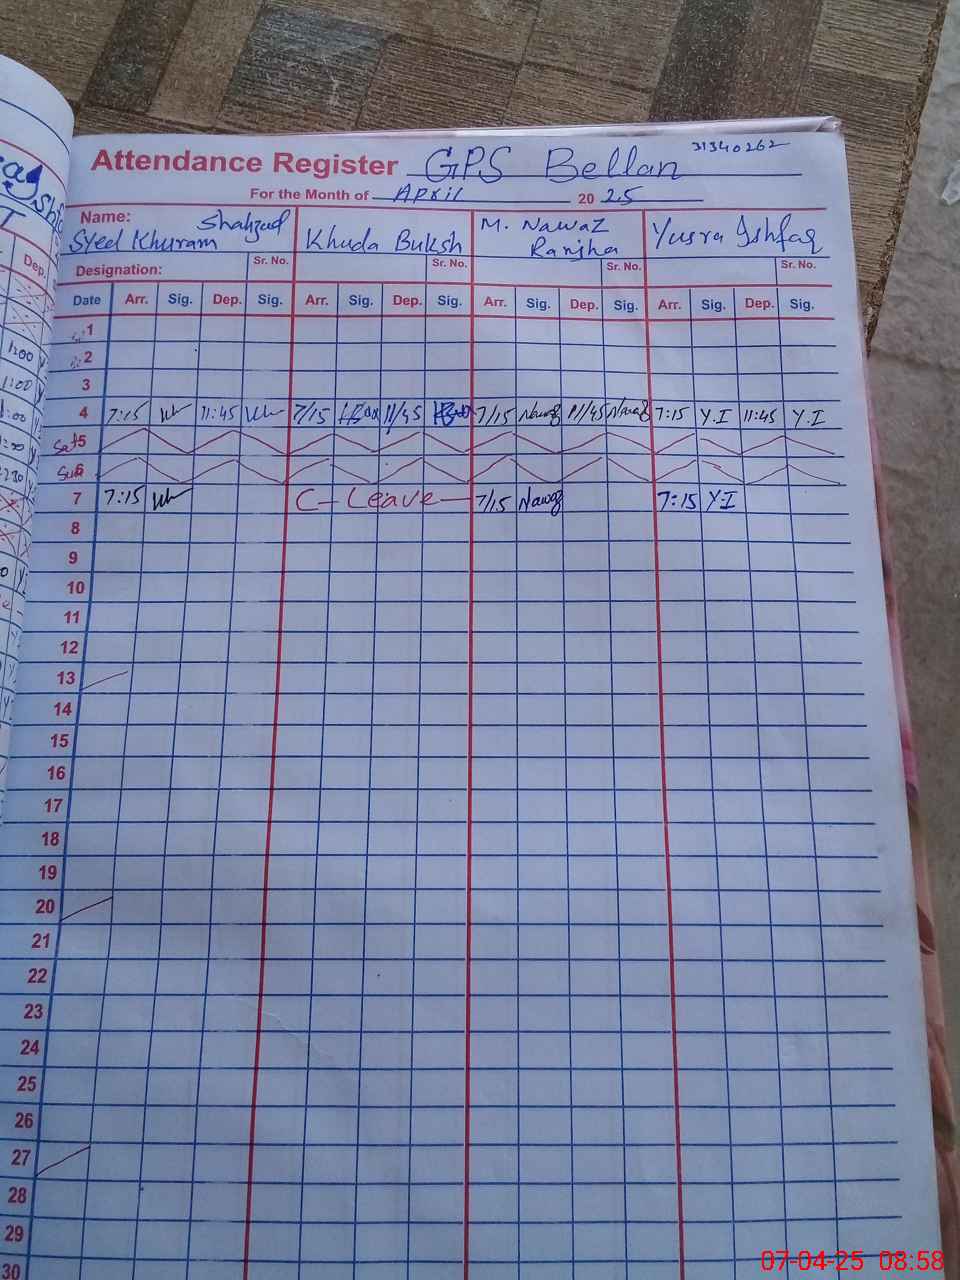 Attendance Register GPS Bellan 31340262
For the Month of April 20 25
Name: Syed Khuram Shahzad Khuda Buksh M. Nawaz Ranjha Yusra Ishfaq
Designation: Sr. No. Sr. No. Sr. No. Sr. No.
Dep.
Date Arr. Sig. Dep. Sig. Arr. Sig. Dep. Sig. Arr. Sig. Dep. Sig. Arr. Sig. Dep. Sig.
1
2
3
4 7:15 11:45 7/15 11/45 7/15 Nawaz 11/45 Nawaz 7:15 Y.I 11:45 Y.I
Sat 5
Sun 6
7 7:15 C-Leave 7/15 Nawaz 7:15 Y.I
8
9
10
11
12
13
14
15
16
17
18
19
20
21
22
23
24
25
26
27
28
29
30
07-04-25 08:58